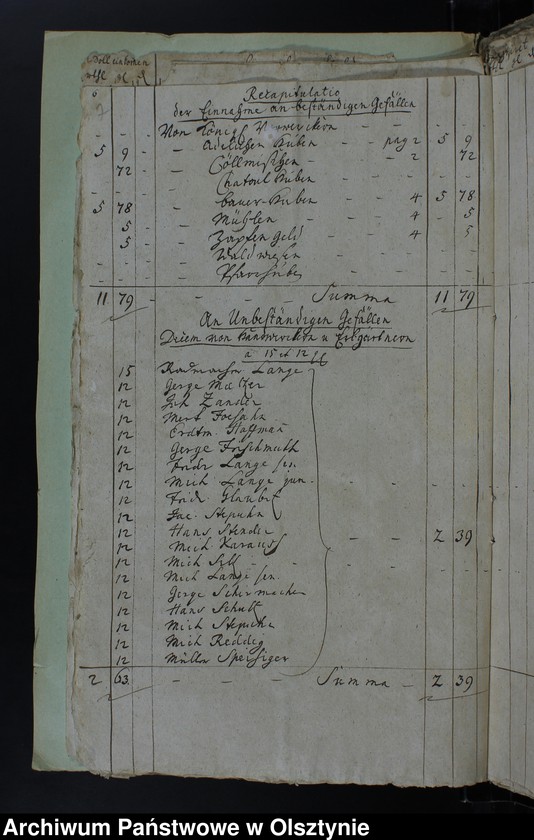 Soll einkomen
6 Recapitulatio
der Einnahme an beständigen Gefällen
Von Königl Vorwerckern
5 9 Adelichen Huben pag 2 5 9
72 Cöllmischen 2 72
Chatoul Huben
5 78 Bauer Huben 4 5 78
5 Mühlen 4 5
5 Zapfen Geld 4 5
Wald wiesen
Pfarrhuben
11 79 Summa 11 79
An Unbeständigen Gefällen
Decem von Handwerckern u Erbgärtnern
a 15 et 12
15 Radmacher Lange
12 Gerge Meltzer
12 Joh Zander
12 Mert
12 Erdtm Hoffman
12 Gerge Frischmuth
12 Fridr Lange sen
12 Mich Lange jun.
12 Frid Glaubit
12 Jac. Stepuhn
12 Hans Stender 2 39
12 Mich Karauss
12 Mich
12 Mich Lange sen.
12 Gerge Schirmacher
12 Hans Schultz
12 Mich Stepuhn
12 Mich Reddig
12 Müller Speisiger
2 63. Summa 2 39
Archiwum Państwowe w Olsztynie